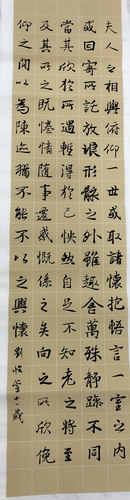 夫人之相與俯仰一世或取諸懷抱悟言一室之內
或因寄所託放浪形骸之外雖趣舍萬殊靜躁不同
當其欣於所遇暫得於己怏然自足不知老之將至
及其所之既惓情隨事遷感慨係之矣向之所欣俛
仰之間以為陳迹猶不能不以之興懷 劉 十一歲